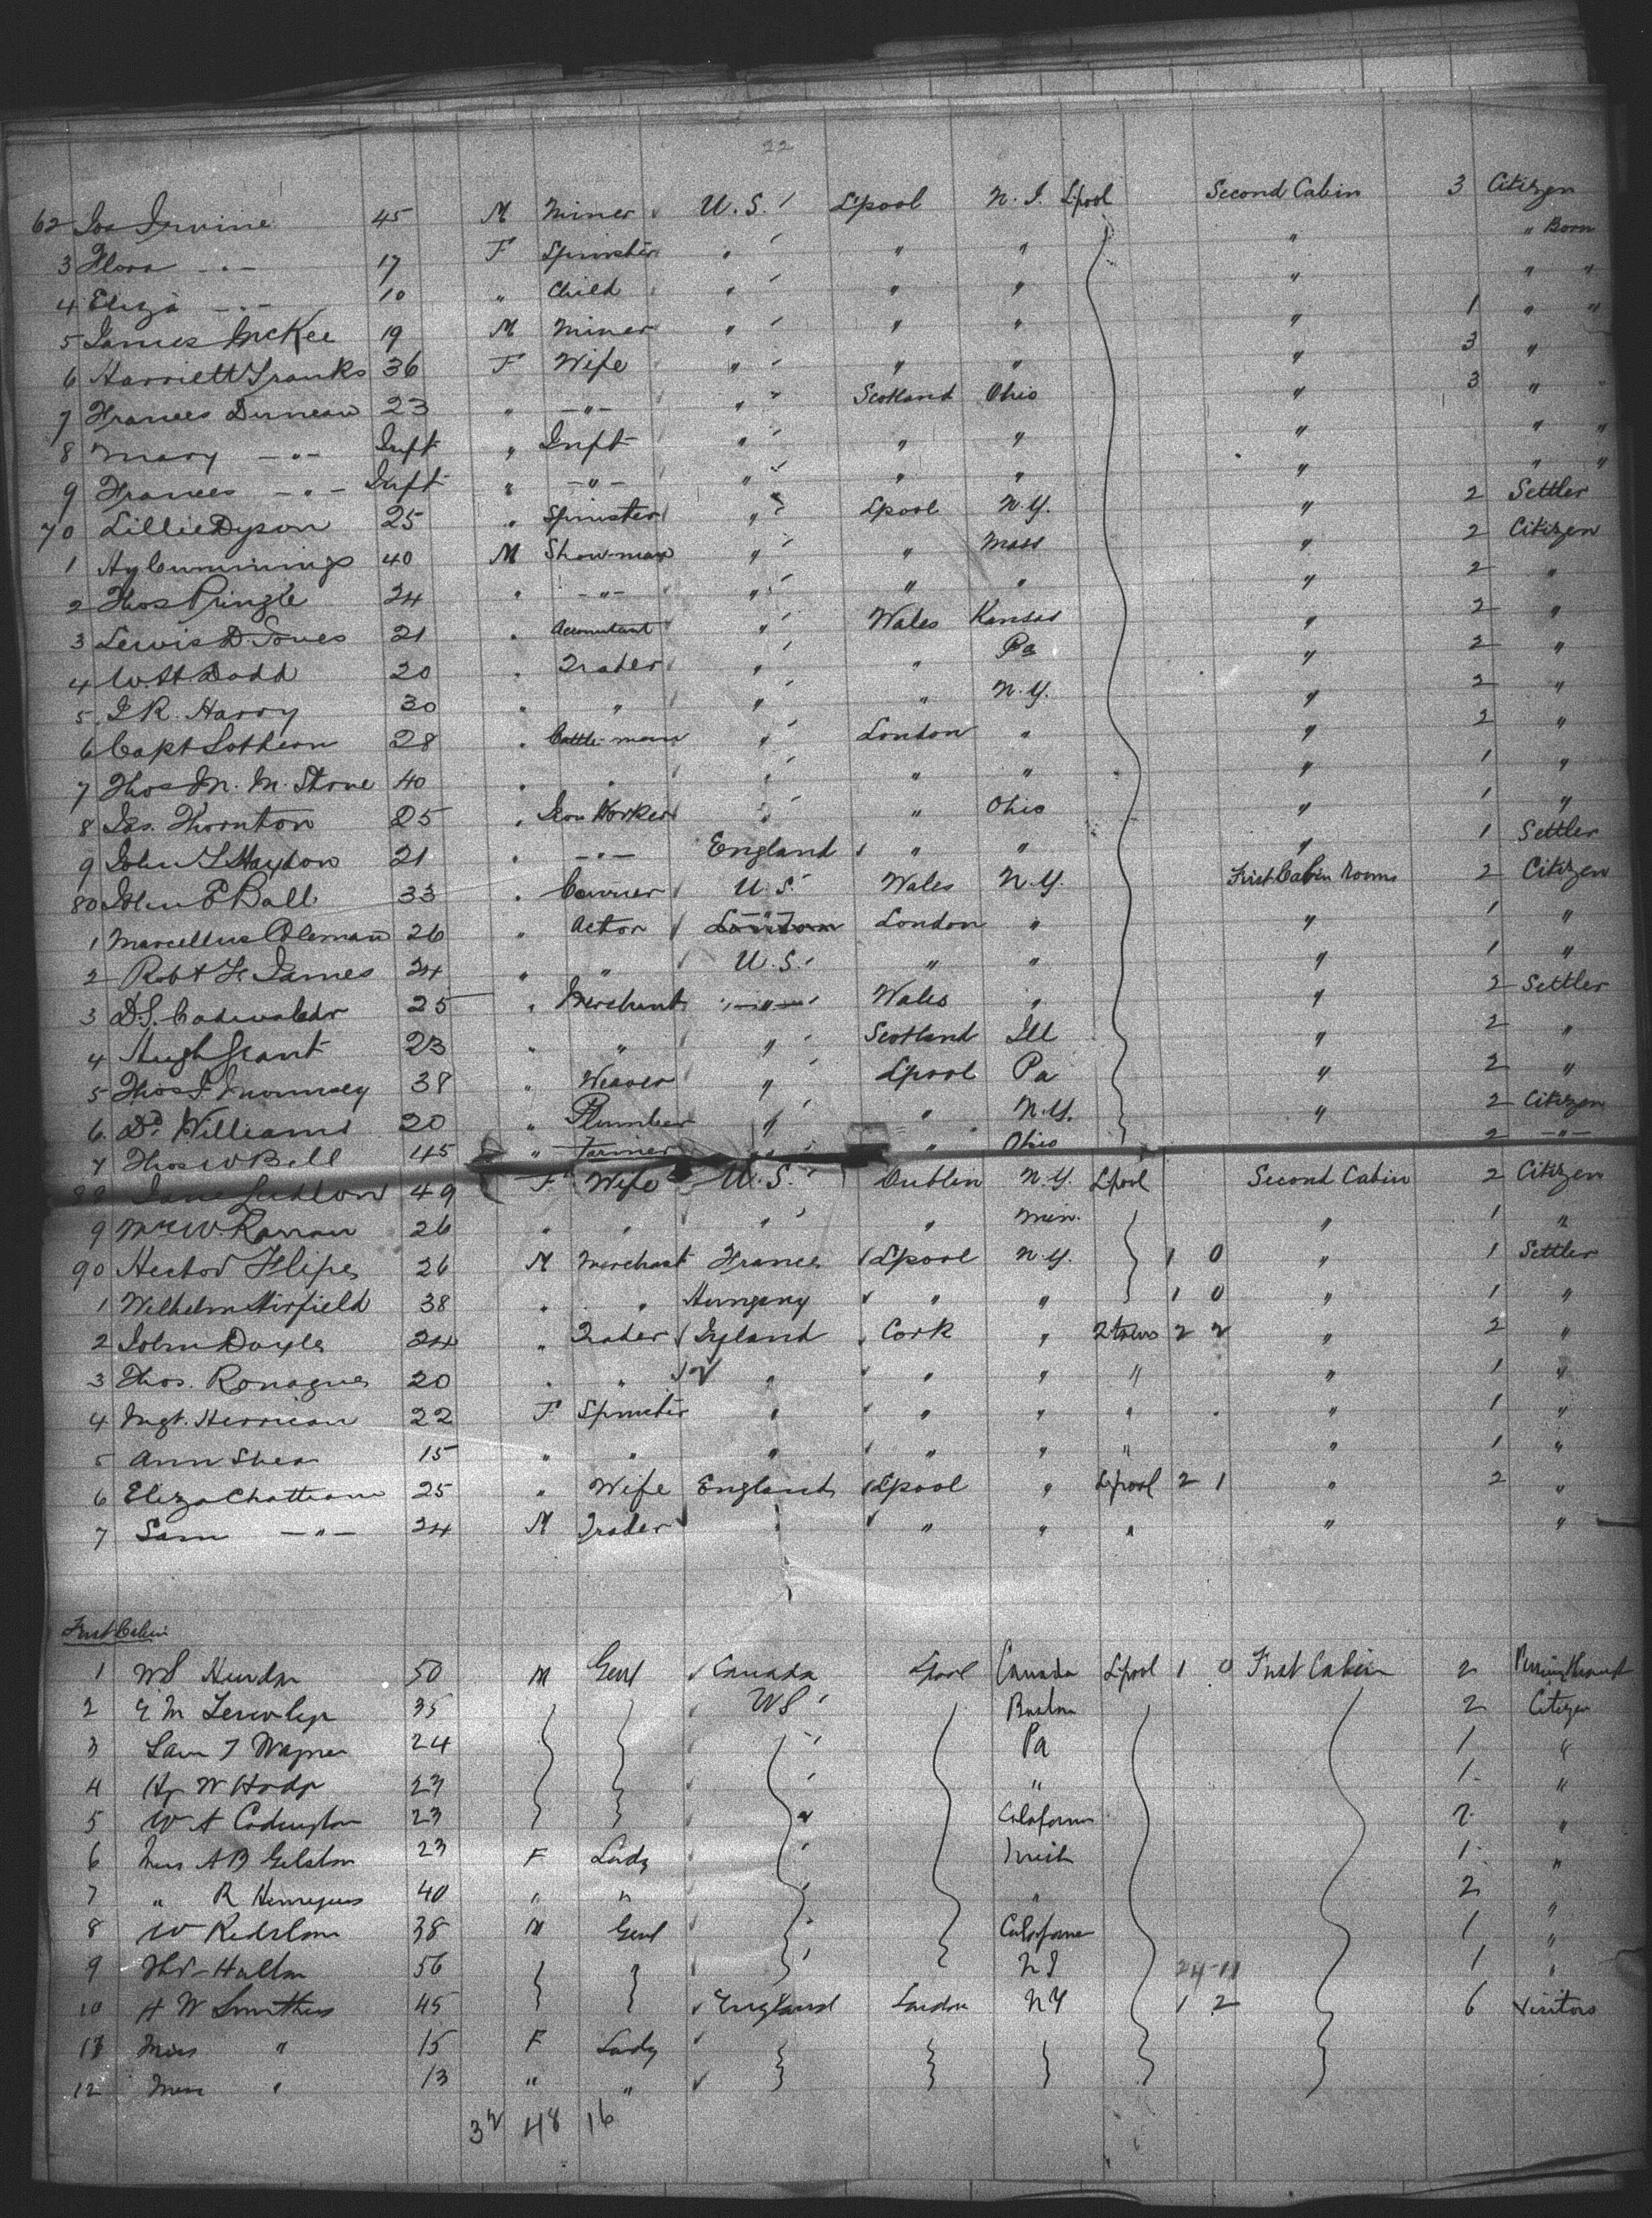 22
62 Jos Irvine 45 M Miner U.S. L'pool N.J. L'pool Second Cabin 3 Citizen
3 Flora -"- 17 F Spinster " " " " " Born
4 Eliza -"- 10 " Child " " " " " "
5 James McKee 19 M Miner " " " " 1 " "
6 Harriett Franks 36 F Wife " " " " 3 "
7 Frances Duncan 23 " -"- " Scotland Ohio " 3 " "
8 Mary -"- Inft " Inft " " " " " "
9 Frances -"- Inft " -"- " " " " " "
70 Lillie Dyson 25 " Spinster " Lpool N.Y. " 2 Settler
1 Hy Cummings 40 M Showman " " Mass " 2 Citizen
2 Thos Pringle 24 " -"- " " " " 2 "
3 Lewis D. Jones 21 " Accountant " Wales Kansas " 2 "
4 W.H. Dodd 20 " Trader " " Pa " 2 "
5 J.R. Harry 30 " " " " N.Y. " 2 "
6 Capt Lothean 28 " Cattle man " London " " 2 "
7 Thos M. M. Stone 40 " " " " " " 1 "
8 Jas. Thornton 25 " Iron Worker " " Ohio " 1 "
9 John Haydon 21 " -"- England " " " 1 Settler
80 John P Ball 33 " U.S. Wales N.Y. First Cabin Rooms 2 Citizen
1 Marcellus Coleman 26 " Actor London London " " 1 "
2 Robt James 24 " " U.S. " " " 1 "
3 D.S. Cadwaladr 25 " Merchant -"- Wales " " 2 Settler
4 Hugh Grant 23 " " " Scotland Ill " 2 "
5 Thos 38 " Weaver " Lpool Pa " 2 "
6 Dd Williams 20 " Plumber " " N.Y. " 2 Citizen
7 Thos W Bell 45 " Farmer " " Ohio 2 -"-
88 Jane 49 F Wife U.S. Dublin N.Y. L'pool Second Cabin 2 Citizen
9 Mrs W. 26 " " " " Min. " 1 "
90 Hector 26 M Merchant France Lpool N.Y. 1 0 " 1 Settler
1 Wilhelm Hirfield 38 " " Hungary " " 1 0 " 1 "
2 John Doyle 24 " Trader Ireland Cork " 2 2 " 2 "
3 Thos. Ronagne 20 " " " " " " " 1 "
4 Mgt. 22 F Spinster " " " " " 1 "
5 Ann Shea 15 " " " " " " " 1 "
6 Eliza 25 " Wife England Lpool " L'pool 2 1 " 2 "
7 Sam -"- 24 M Trader " " " " " "
First Cabin
1 W S 50 M Genl Canada Lpool Canada Lpool 1 0 First Cabin 2
2 E M 35 US Boston 2 Citizen
3 Sam J Wagner 24 Pa 1 "
4 Hy W 23 " 1 "
5 W A Codington 23 California 2 "
6 Miss A B Gelston 23 F Lady 1 "
7 " R 40 " " " 2 "
8 W 38 M Genl California 1 "
9 56 " 24-11 1 "
10 H W 45 England London NY 1 2 6 Visitors
11 Miss " 15 F Lady
12 Miss " 13 " "
32 48 16